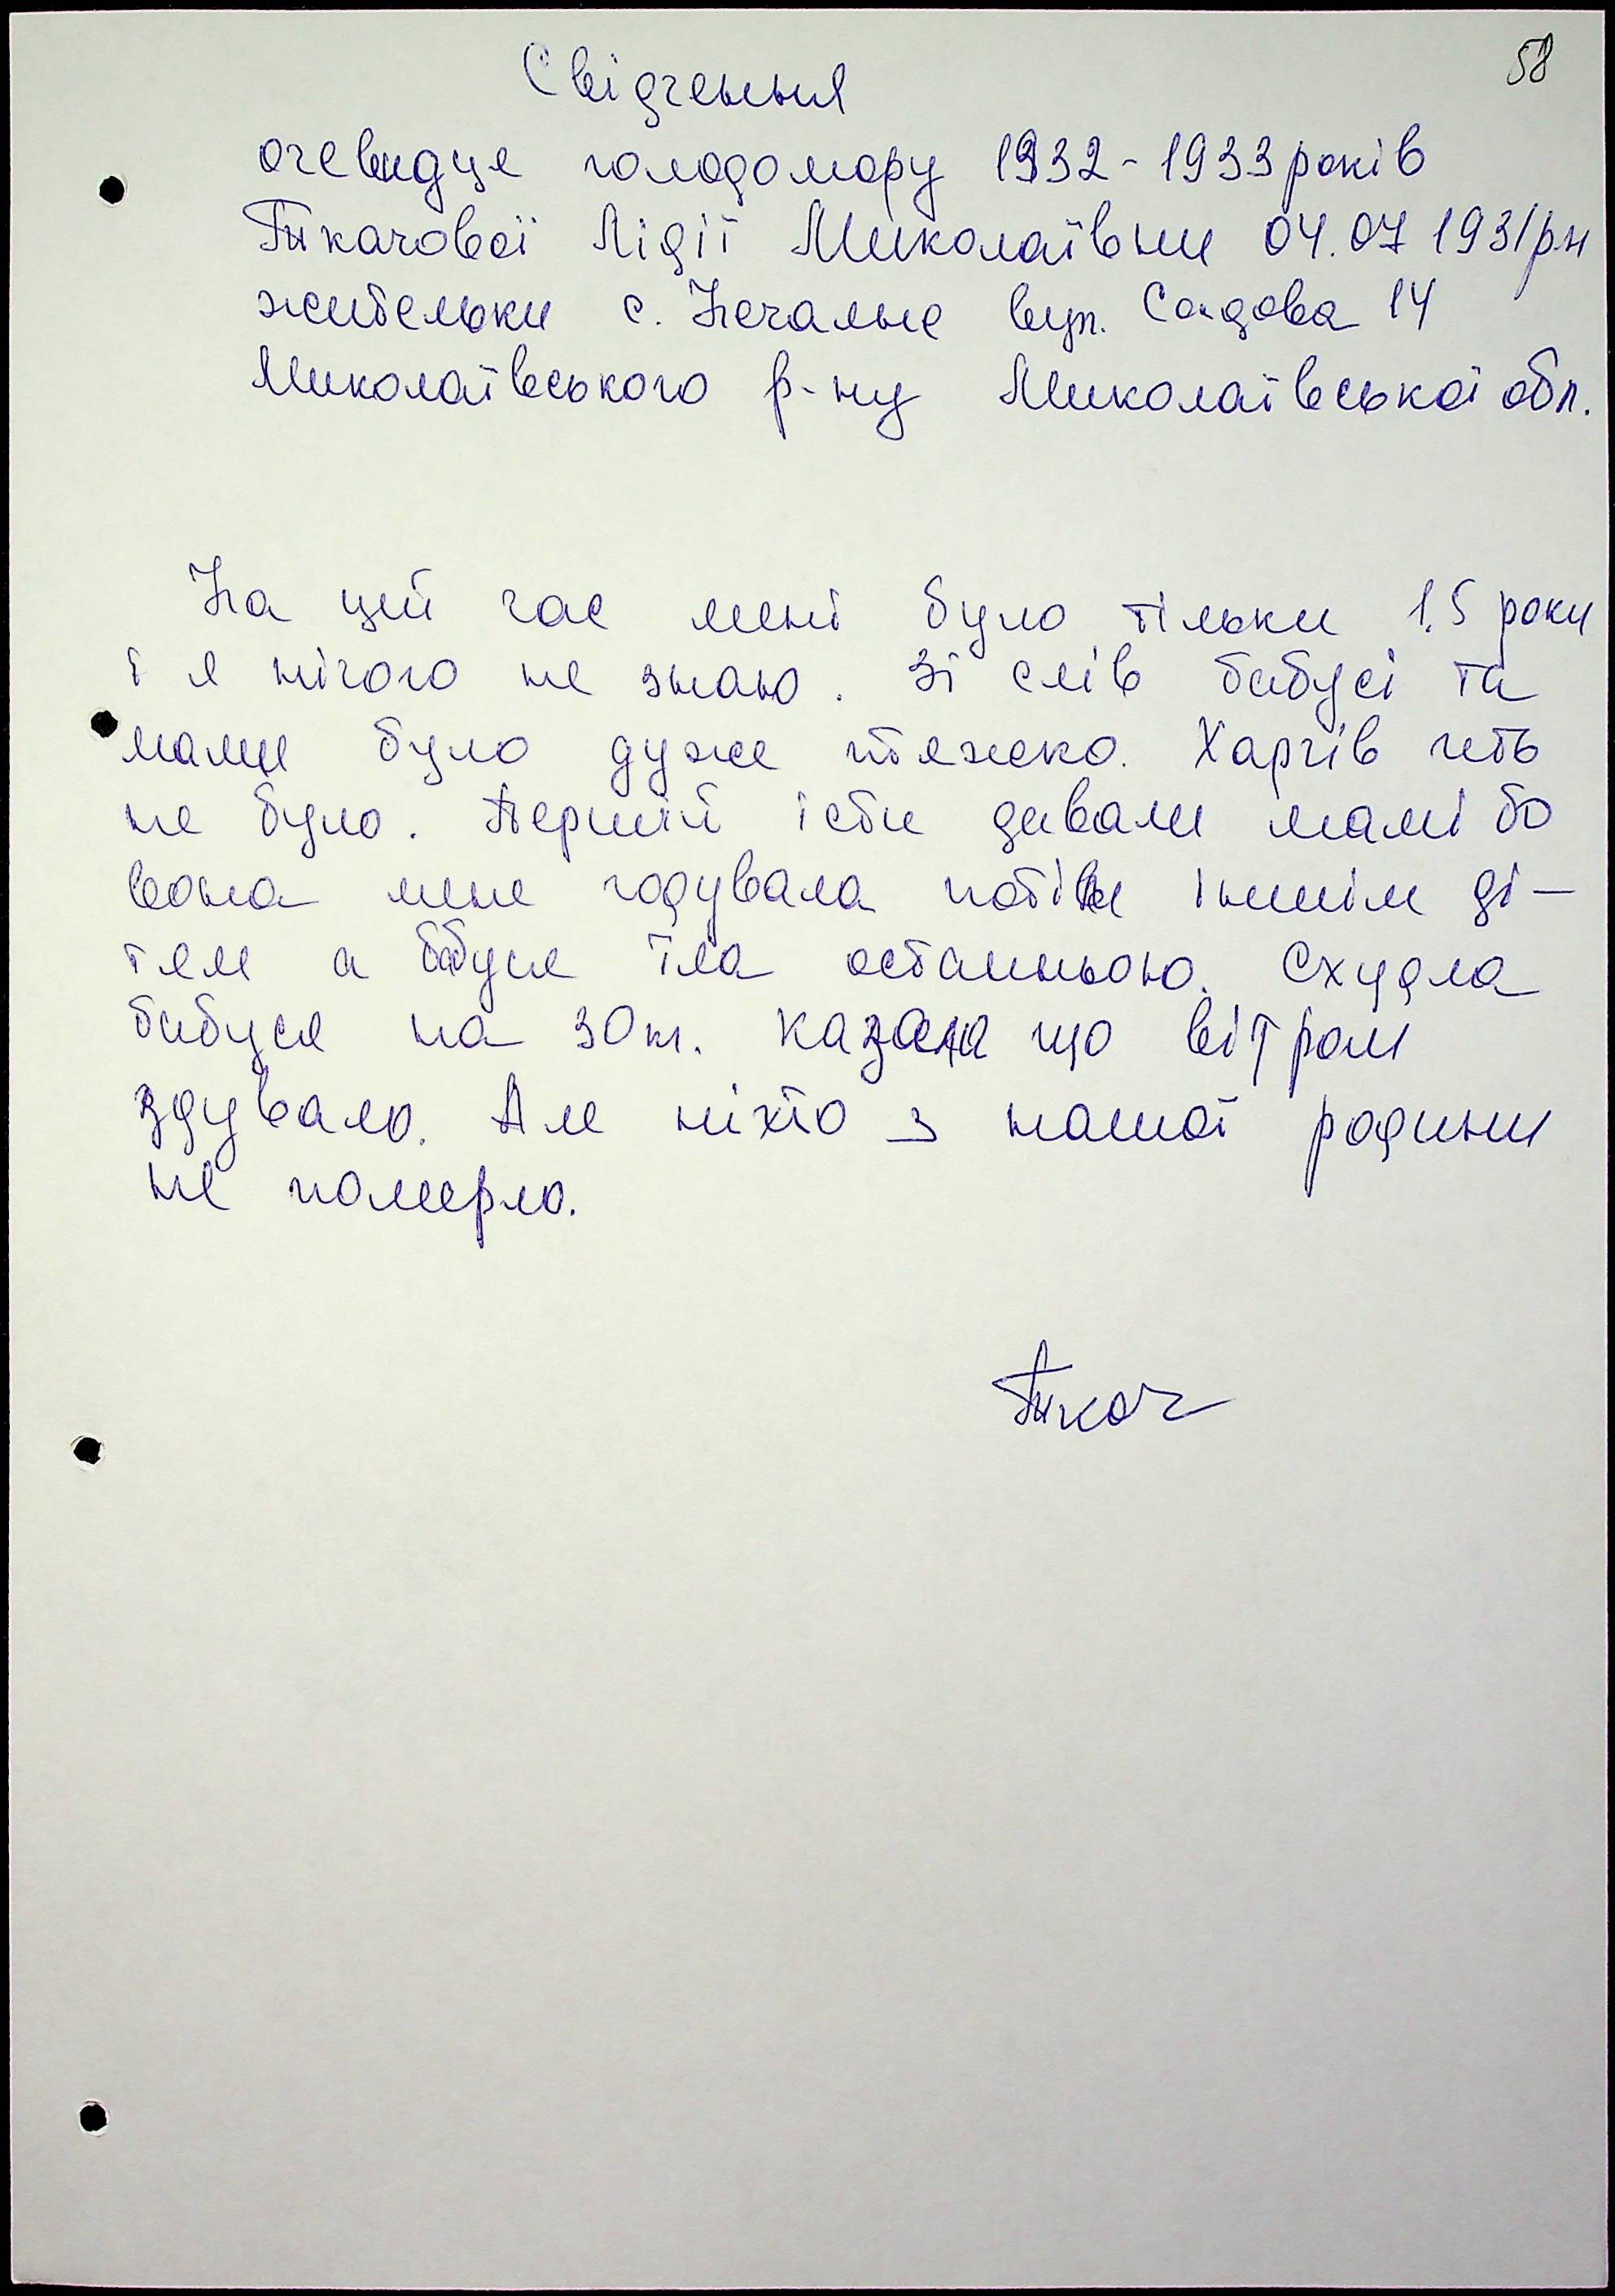 58
Свідчення
очевидця голодомору 1932-1933 років
Ткачової Лідії Миколаївни 04.07 1931рн
жительки с. Нечаяне вул. Садова 14
Миколаївського р-ну Миколаївської обл.
На цей час мені було тільки 1,5 роки
і я нічого не знаю. Зі слів бабусі та
мами було дуже тяжко. Харчів геть
не було. Першій їсти давали мамі бо
вона мене годувала потім іншим ді-
тям а бабуся їла останньою. Схудла
бабуся на 30кг. казала що вітром
здувало. Але ніхто з нашої родини
не померло.
Ткач